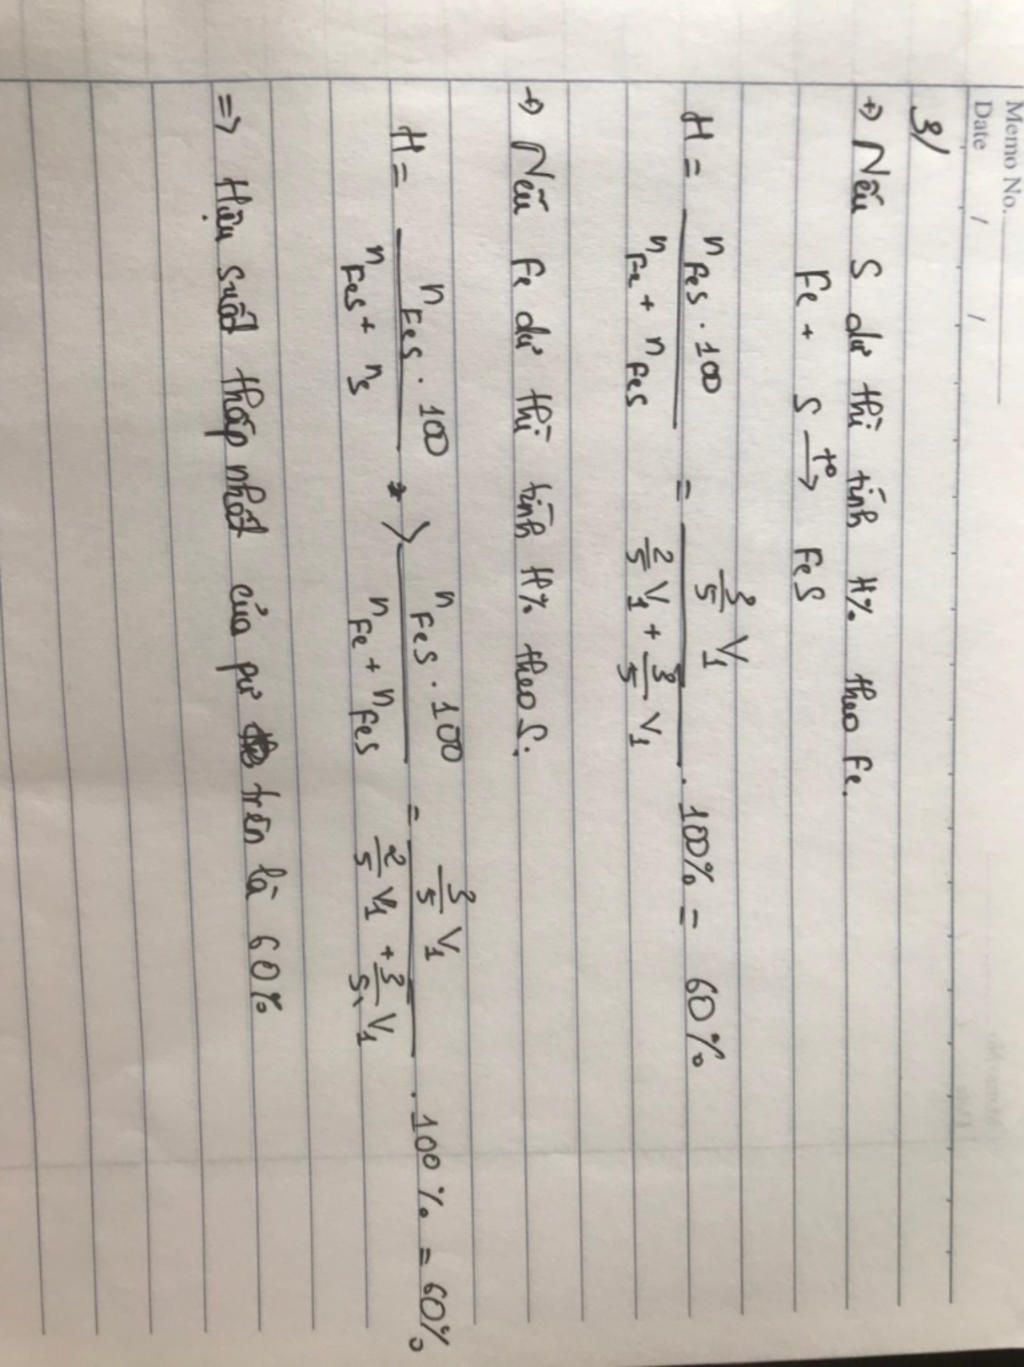 Memo No.
Date / /
3/
+) Nếu S dư thì tính H% theo Fe.
Fe + S t°→ FeS
H = nFeS . 100 / nFe + nFeS = 3/5 V1 / 2/5 V1 + 3/5 V1 . 100% = 60%
+) Nếu Fe dư thì tính H% theo S.
H = nFeS . 100 / nFeS + nS > nFeS . 100 / nFe + nFeS = 3/5 V1 / 2/5 V1 + 3/5 V1 . 100% = 60%
=> Hiệu suất thấp nhất của pư trên là 60%